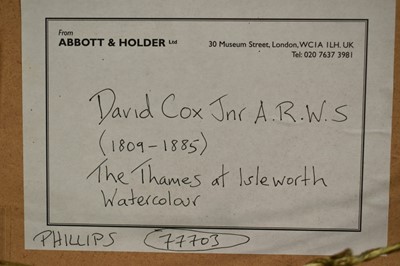 From
ABBOTT & HOLDER Ltd
30 Museum Street, London, WC1A 1LH. UK
Tel: 020 7637 3981
David Cox Jnr A.R.W.S
(1809-1885)
The Thames at Isleworth
Watercolour
PHILLIPS 77703